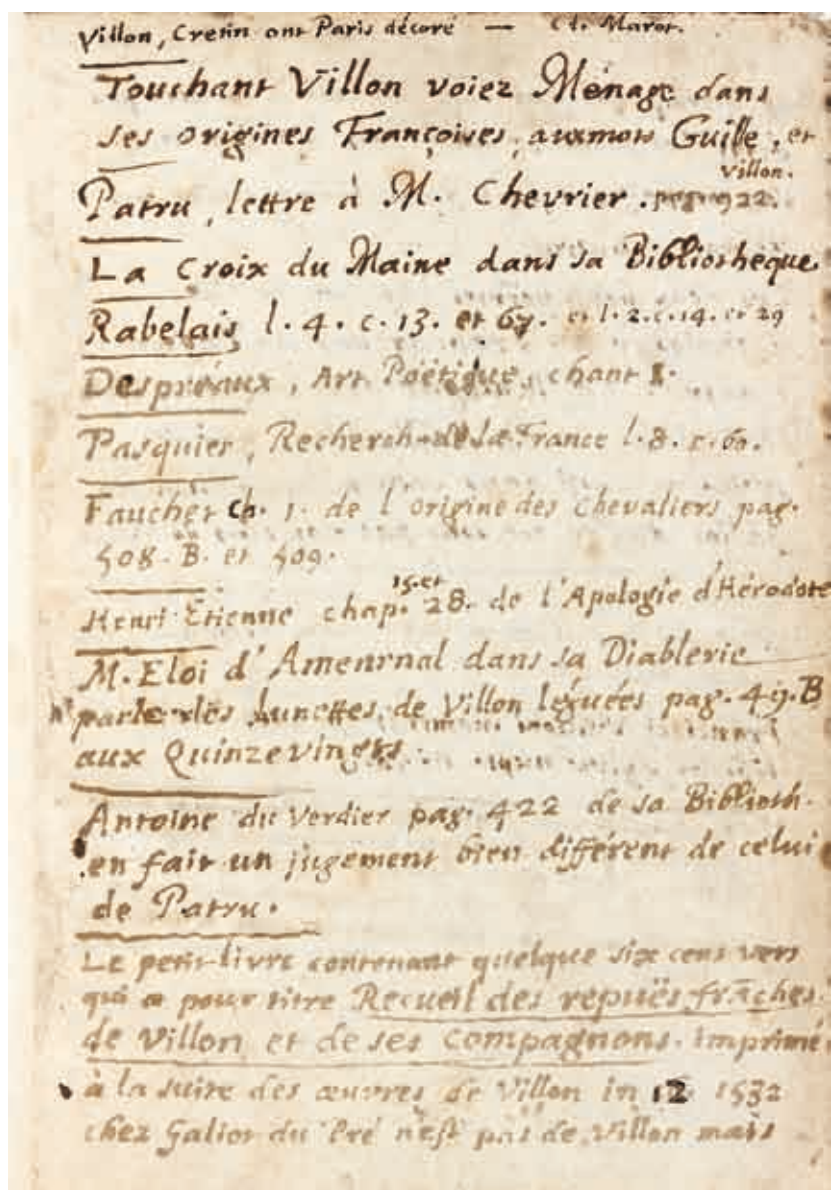 Villon, Cretin ont Paris décoré — Cl. Marot.
Touchant Villon voiez Ménage dans
ses origines Françoises, aux mots Guille, et
Villon.
Patru, lettre à M. Chevrier. pag. 922.
La Croix du Maine dans sa Bibliotheque
Rabelais l. 4. c. 13. et 67. et l. 2. c. 14. et 29
Despréaux, Art Poëtique, chant I.
Pasquier, Recherch. de la France l. 8. c. 60.
Fauchet ch. 1. de l'origine des Chevaliers pag.
508. B. et 509.
15. et
Henri Etienne chap. 28. de l'Apologie d'Hérodote
M. Eloi d'Amernal dans sa Diablerie
parle des lunettes de Villon léguées pag. 49. B
aux Quinzevingts.
Antoine du Verdier pag. 422 de sa Biblioth.
en fait un jugement bien différent de celui
de Patru.
Le petit livre contenant quelque six cens vers
qui a pour titre Recueil des repuës frāches
de Villon et de ses compagnons. imprimé
à la suite des œuvres de Villon in 12 1532
chez Galiot du Pré n'est pas de Villon mais